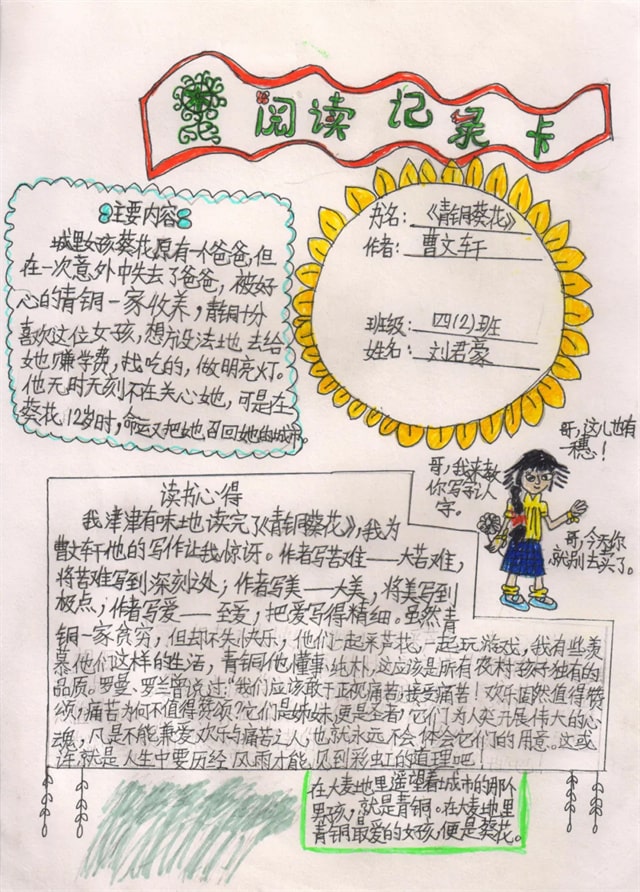 阅读记录卡
主要内容
城里女孩葵花原有一个爸爸,但
在一次意外中失去了爸爸,被好
心的青铜一家收养,青铜十分
喜欢这位女孩,想方设法地去给
她赚学费,找吃的,做明亮灯。
他无时无刻不在关心她,可是在
葵花12岁时,命运又把她召回她的城市。
书名:《青铜葵花》
作者:曹文轩
班级:四(2)班
姓名:刘君豪
哥,这儿也有
一穗!
哥,我来教
你写字认
字。
哥,今天你
就别去买了。
读书心得
我津津有味地读完了《青铜葵花》,我为
曹文轩他的写作让我惊讶。作者写苦难——大苦难,
将苦难写到深刻之处;作者写美——大美,将美写到
极点;作者写爱——至爱,把爱写得精细。虽然青
铜一家贫穷,但却不失快乐,他们一起采芦花,一起玩游戏,我有些羡
慕他们这样的生活,青铜他懂事、纯朴,这应该是所有农村孩子独有的
品质。罗曼、罗兰曾说过:“我们应该敢于正视痛苦,接受痛苦!欢乐固然值得赞
颂,痛苦为何不值得赞颂?它们是妹妹,更是圣者,它们为人类开展伟大的心
魂,凡是不能兼爱欢乐与痛苦之人,也就永远不会体会它们的用意。这或
许就是人生中要历经风雨才能见到彩虹的道理吧!
在大麦地里遥望着城市的那个
男孩,就是青铜。在大麦地里
青铜最爱的女孩,便是葵花。